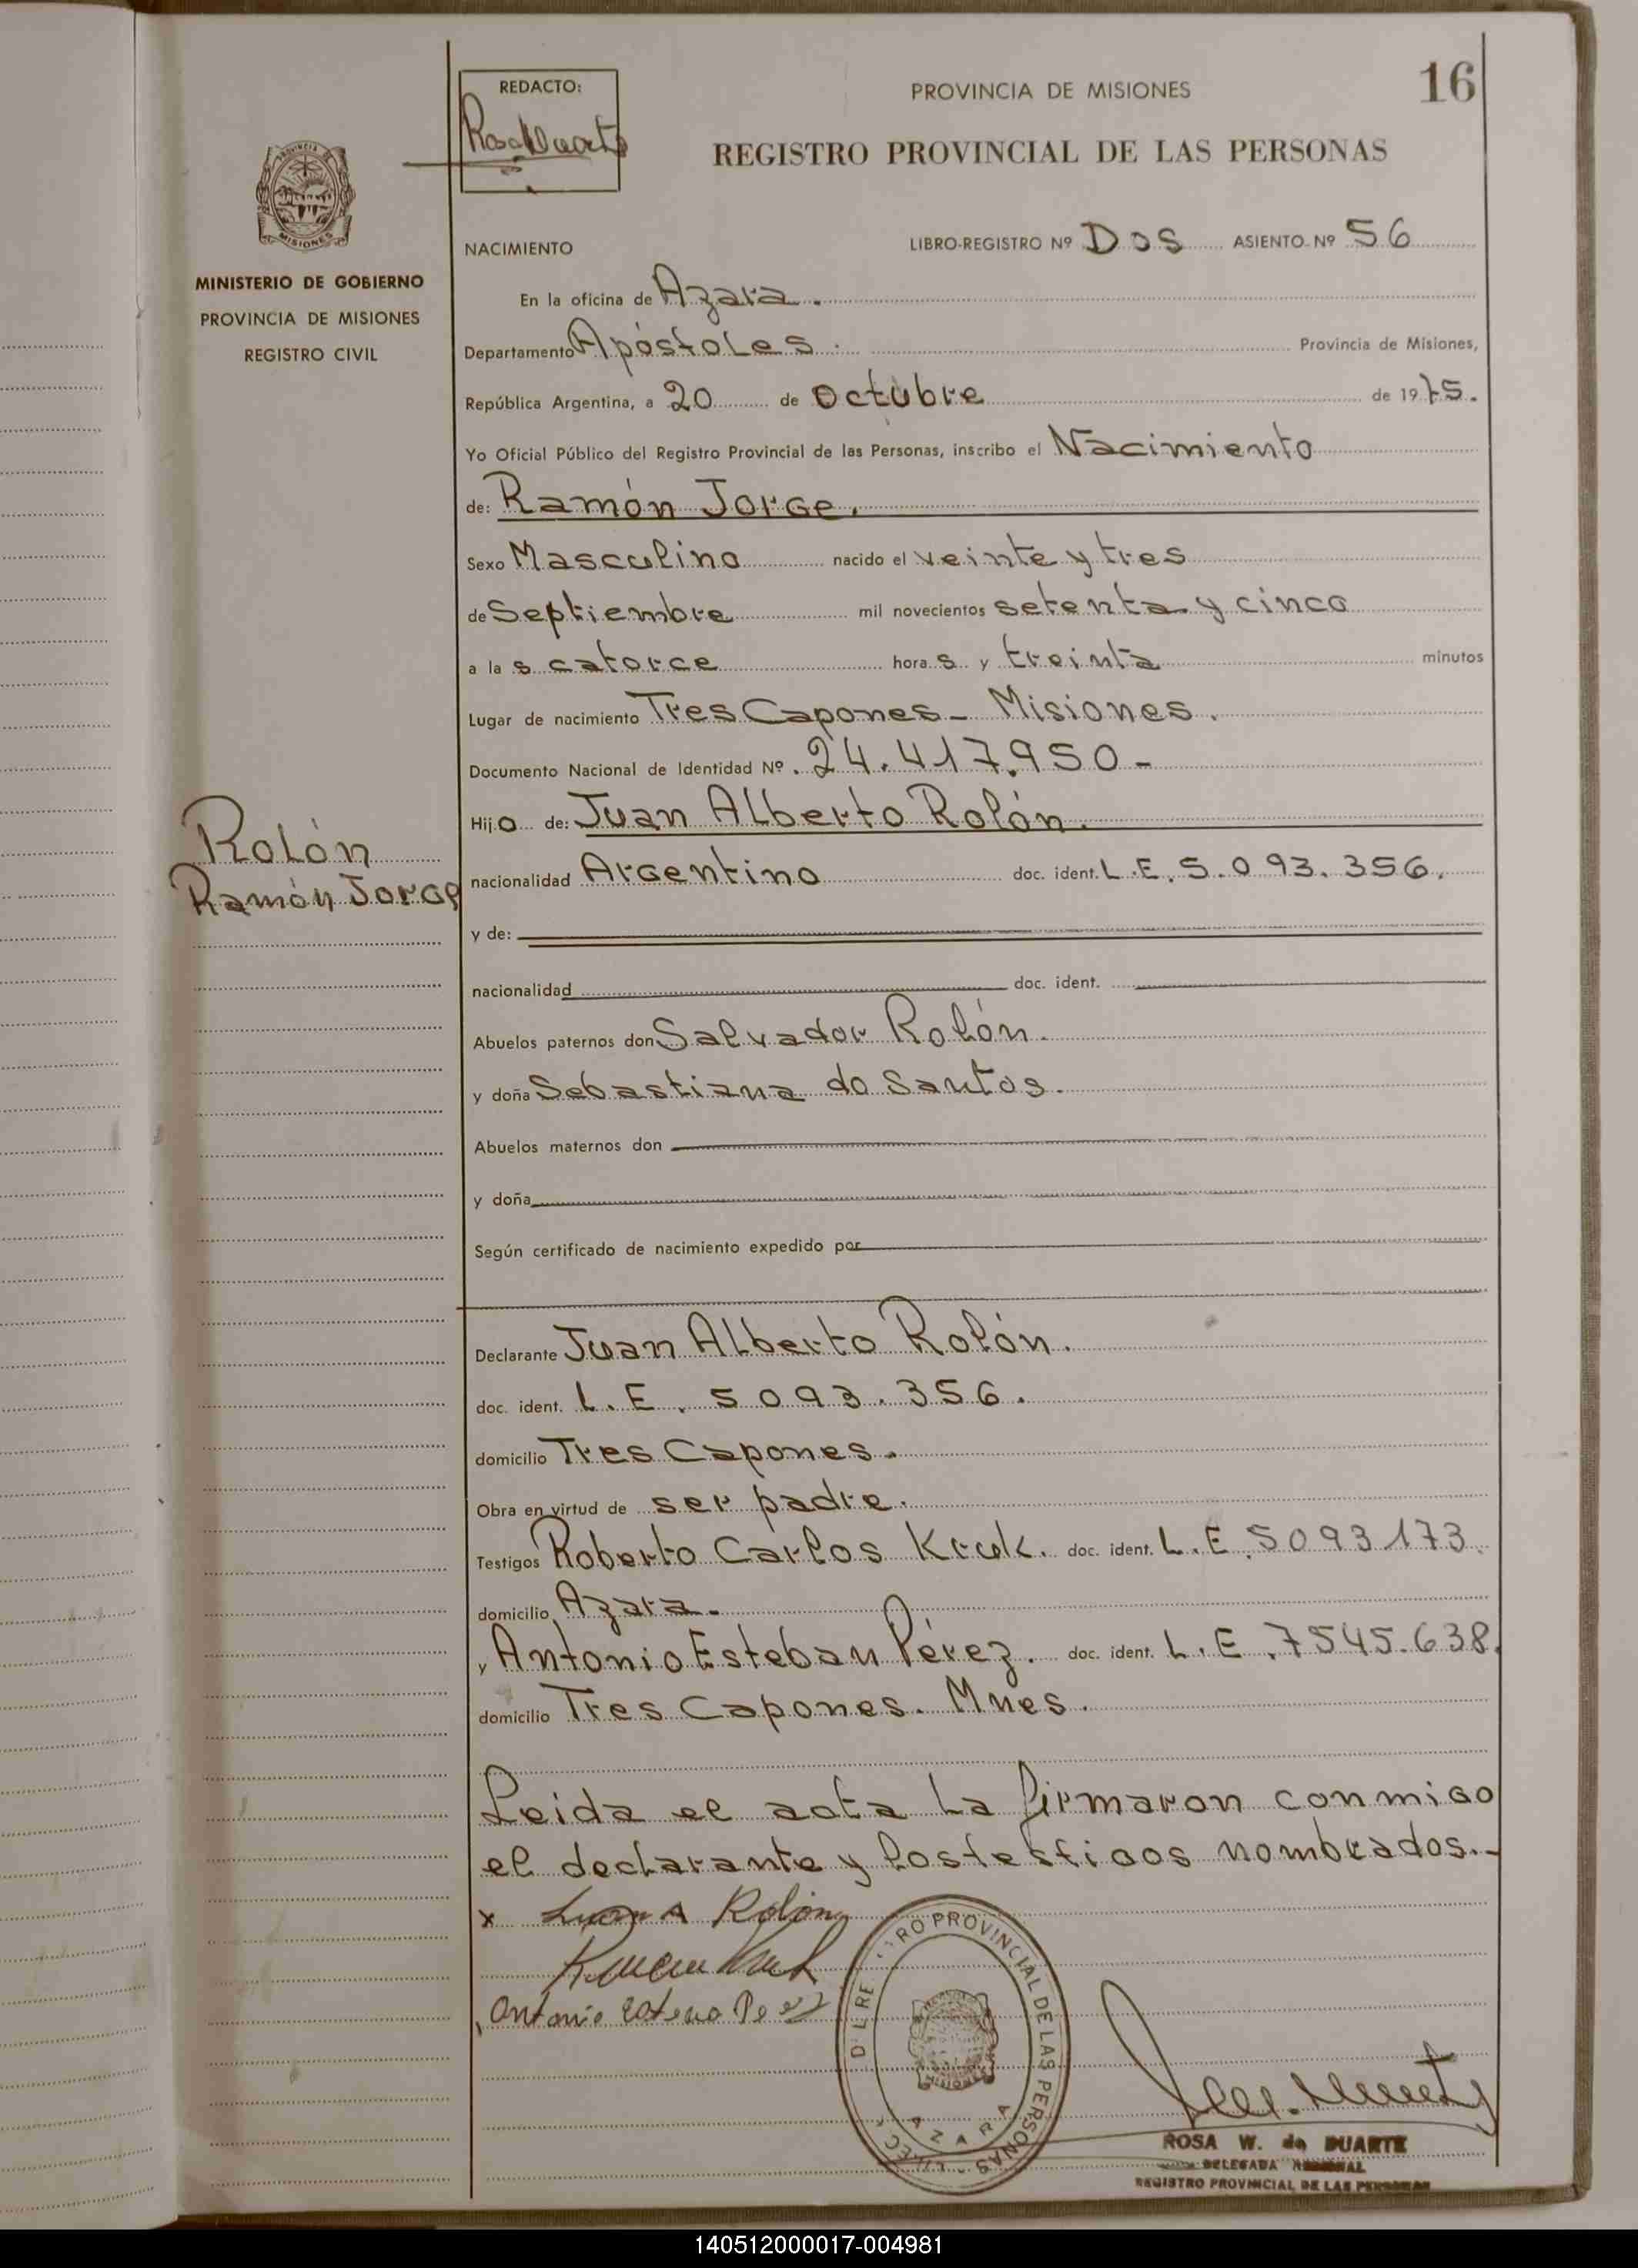 16
REDACTO:
Rosa Duarte
PROVINCIA DE MISIONES
REGISTRO PROVINCIAL DE LAS PERSONAS
PROVINCIA DE
MISIONES
MINISTERIO DE GOBIERNO
PROVINCIA DE MISIONES
REGISTRO CIVIL
NACIMIENTO LIBRO-REGISTRO Nº Dos ASIENTO Nº 56
En la oficina de Azara.
Departamento Apóstoles. Provincia de Misiones,
República Argentina, a 20 de Octubre de 1975.
Yo Oficial Público del Registro Provincial de las Personas, inscribo el Nacimiento
de: Ramón Jorge.
Sexo Masculino nacido el veinte y tres
de Septiembre mil novecientos setenta y cinco
a la s catorce hora s y treinta minutos
Lugar de nacimiento Tres Capones - Misiones.
Documento Nacional de Identidad Nº. 24.417.950-
Hijo de: Juan Alberto Rolón.
Rolón
Ramón Jorge
nacionalidad Argentino doc. ident. L.E. 5.093.356.
y de:
nacionalidad doc. ident.
Abuelos paternos don Salvador Rolón.
y doña Sebastiana do Santos.
Abuelos maternos don
y doña
Según certificado de nacimiento expedido por
Declarante Juan Alberto Rolón.
doc. ident. L.E. 5093.356.
domicilio Tres Capones.
Obra en virtud de ser padre.
Testigos Roberto Carlos Kruk. doc. ident. L.E. 5093173.
domicilio Azara.
y Antonio Esteban Pérez. doc. ident. L.E. 7545.638.
domicilio Tres Capones. Mnes.
Leida el acta la firmaron conmigo
el declarante y los testigos nombrados.-
x Juan A Rolón
Antonio Esteban Perez
REGISTRO PROVINCIAL DE LAS PERSONAS
AZARA
ROSA W. de DUARTE
DELEGADA
REGISTRO PROVINCIAL DE LAS PERSONAS
140512000017-004981